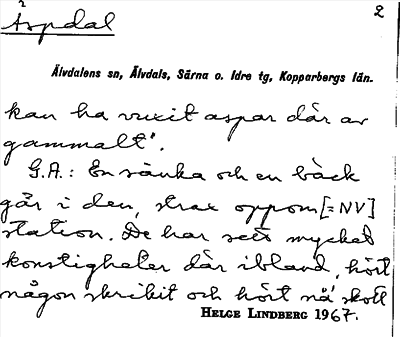 Åspdal
2
Älvdalens sn, Älvdals, Särna o. Idre tg, Kopparbergs län.
kan ha vuxit aspar där av
gammalt".
G.A.: En sänka och en bäck
går i den, strax oppom [= NV]
station. De har sett mycket
konstigheter där ibland, hört
någon skrikit och hört nå' skott
HELGE LINDBERG 1967.